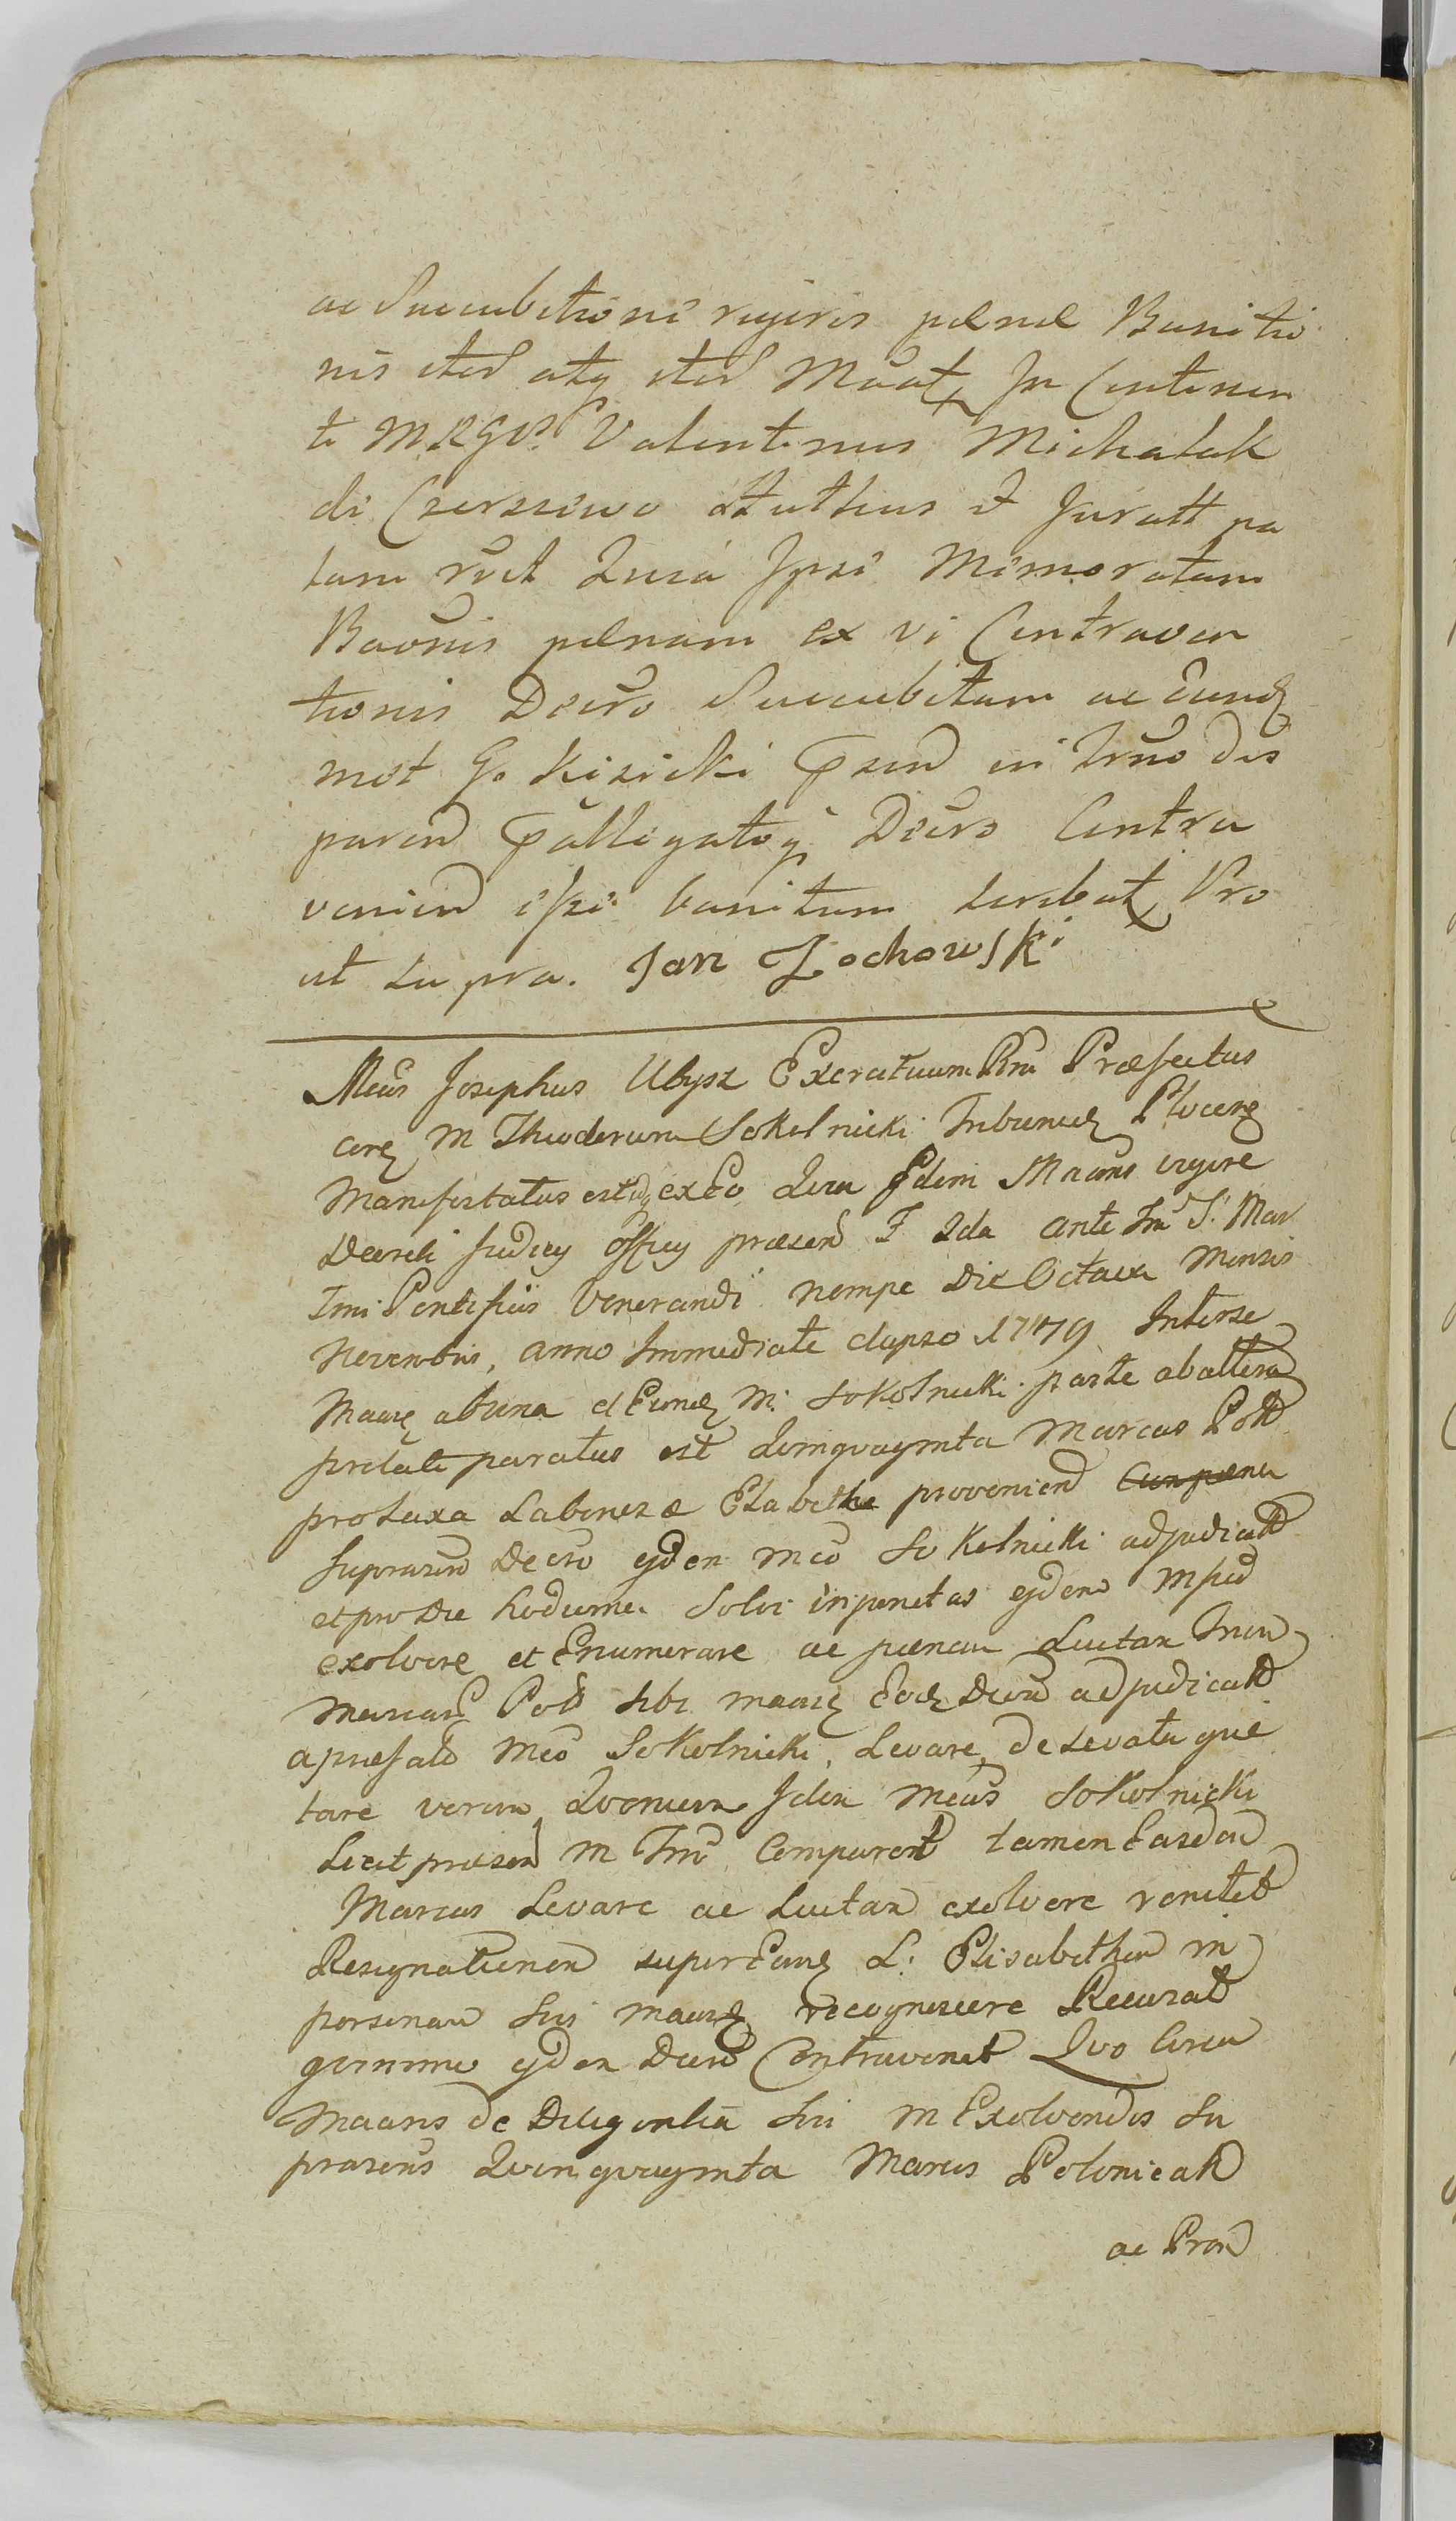 ac Succubitioni rigoris pœnæ Banitio
nis ited atq ited Māat In Continen
ti M R G P Valentinus Michalak
de Czerszewo Scultetus et Juratt pa
lam rūit Quia Ipse Memoratam
Baōnis pœnam ex vi Contraven
tionis Decro Succubitam ac Eund
mot G. Kisicki in Trno des
paren Decro Contra
venien esse banitum Pro
ut supra. Jan Zochowski
Mcus Josephus Ubysz Exercituum Rni Præfectus
corą M Theodorum Sokolnicki Tribunid Plocens
Manifestatus est idq ex Eo Quia Idem Māans vigore
Decreti Judicy Officy præsend F 2da ante Fm S. Mar
Tini Pontificis Venerandi nempe Die Octava Mensis
Novembris, anno Immediate elapso 1779 Inter se
Maaną ab una et Eund M. Sokolnicki parte ab altera
prolati paratus est Quinquaginta Marcas Poll
pro taxa Laboriosæ Elzbethæ provenien Cum pœna
suprasen Decro ejden Mco Sokolnicki adjudicatt
et pro Die hodierna solvi injunctas ejdem
exolvere et Enumerare ac pœnam Luctan Trium
Marcar Poll sibi maaną Eod Decro adjudicatt
a præfato Mco Sokolnicki, Levare, de Levatis quie
tare verum Quoniam Idem Mcus Sokolnicki
Licet præsen in Trno Comparent tamen Easdem
Marcas Levare ac Luctan exolvere renitet
Resignationem super Eand L. Elisabetham in
personam sui maaną recognoscere Recusat
quinimo ejden Decro Contravenit Quo Circa
Maans de Diligentia sui in Exolvendis su
prasens Quinquaginta Marcis Polonicali
ac Pron